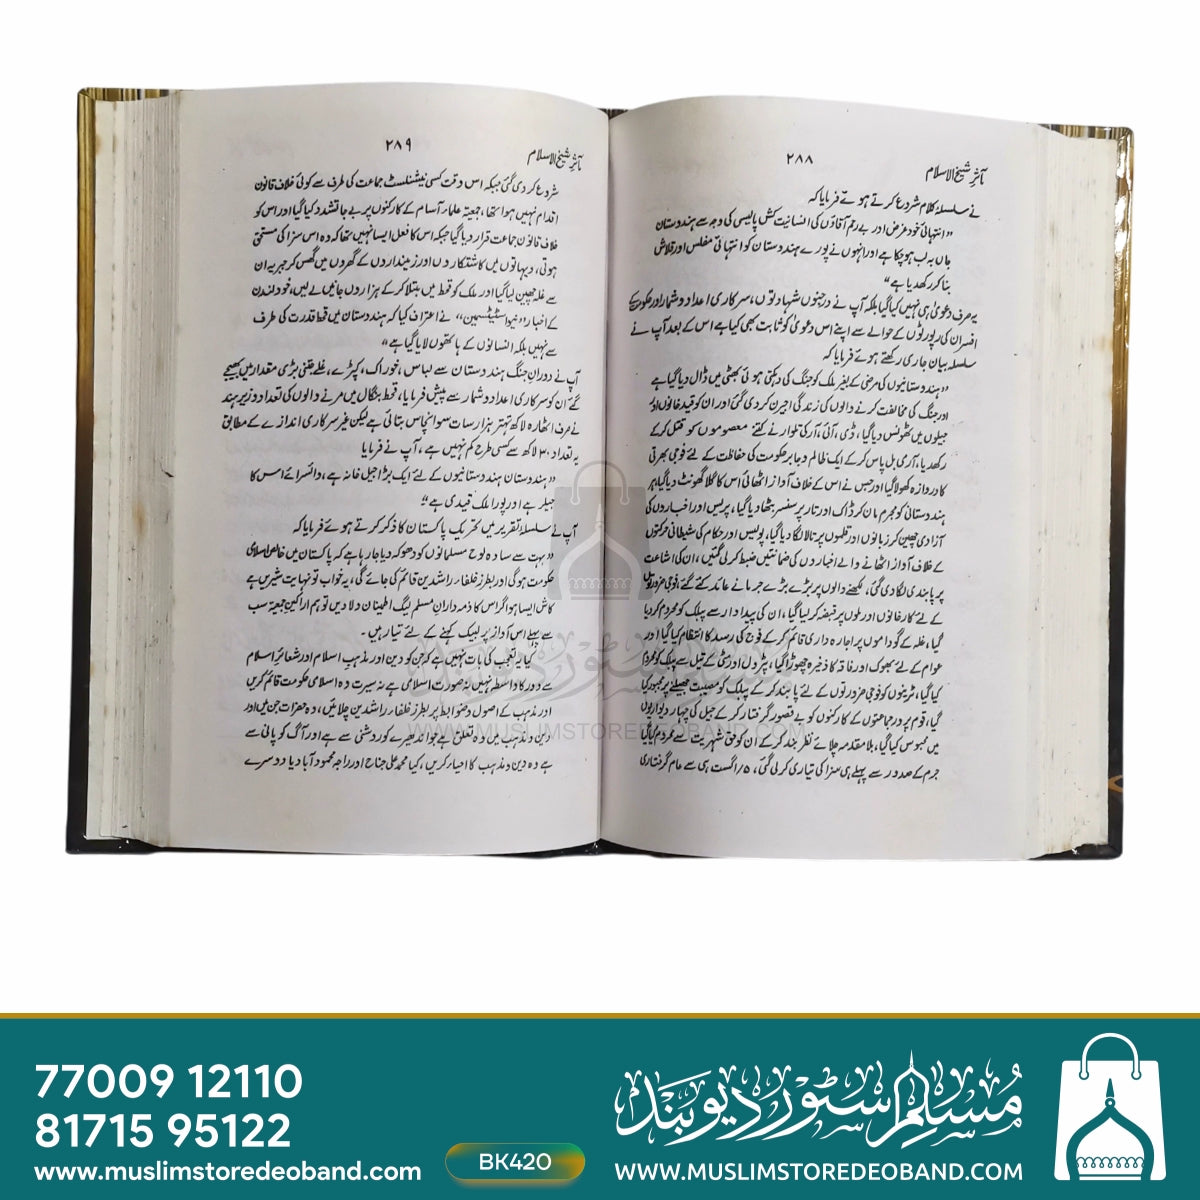 مآثر شیخ الاسلام
۲۸۸
نے سلسلۂ کلام شروع کرتے ہوئے فرمایا کہ
”انتہائی خود غرض اور بے رحم آقاؤں کی انسانیت کش پالیسی کی وجہ سے ہندوستان
جاں بہ لب ہو چکا ہے اور انہوں نے پورے ہندوستان کو انتہائی مفلس اور قلاش
بنا کر رکھدیا ہے“
یہ صرف دعویٰ ہی نہیں کیا گیا بلکہ آپ نے درجنوں شہادتوں، سرکاری اعداد و شمار اور حکومت کے
افسران کی رپورٹوں کے حوالے سے اپنے اس دعویٰ کو ثابت بھی کیا ہے اس کے بعد آپ نے
سلسلہ بیان جاری رکھتے ہوئے فرمایا کہ
”ہندوستانیوں کی مرضی کے بغیر ملک کو جنگ کی دہکتی ہوئی بھٹی میں ڈال دیا گیا ہے
اور جنگ کی مخالفت کرنے والوں کی زندگی اجیرن کر دی گئی اور ان کو قید خانوں اور
جیلوں میں ٹھونس دیا گیا، ڈی، آئی، آر کی تلوار نے کتنے معصوموں کو قتل کر کے
رکھدیا، آرمی بل پاس کر کے ایک ظالم و جابر حکومت کی حفاظت کے لئے فوجی بھرتی
کا دروازہ کھولا گیا اور جس نے اس کے خلاف آواز اٹھائی اس کا گلا گھونٹ دیا گیا، ہر
ہندوستانی کو مجرم مان کر ڈاک اور تار پر سنسر بٹھا دیا گیا، پریس اور اخباروں کی
آزادی چھین کر زبانوں اور قلموں پر تالا لگا دیا گیا، پولیس اور حکام کی شیطانی حرکتوں
کے خلاف آواز اٹھانے والے اخباروں کی ضمانتیں ضبط کر لی گئیں، ان کی اشاعت
پر پابندی لگا دی گئی، لکھنے والوں پر بڑے بڑے جرمانے عائد کئے گئے، فوجی ضرورتوں
کے لئے کارخانوں اور ملوں پر قبضہ کر لیا گیا، ان کی پیداوار سے پبلک کو محروم کر دیا
گیا، غلہ کے گوداموں پر اجارہ داری قائم کر کے فوج کی رسد کا انتظام کیا گیا اور
عوام کے لئے بھوک اور فاقہ کا ذخیرہ چھوڑا گیا، پٹرول اور مٹی کے تیل سے پبلک کو محروم
کیا گیا، ٹرینوں کو فوجی ضرورتوں کے لئے پابند کر کے پبلک کو مصیبت جھیلنے پر مجبور کیا
گیا، قوم پرور جماعتوں کے کارکنوں کو بے قصور گرفتار کر کے جیل کی چہار دیواریوں
میں محبوس کیا گیا، بلا مقدمہ چلائے نظر بند کر کے ان کو حق شہریت سے محروم کیا گیا
جرم کے صدور سے پہلے ہی سزا کی تیاری کر لی گئی، ۵/اگست ہی سے عام گرفتاری
مآثر شیخ الاسلام
۲۸۹
شروع کر دی گئی جبکہ اس وقت کسی نیشنلسٹ جماعت کی طرف سے کوئی خلاف قانون
اقدام نہیں ہوا تھا، جمعیۃ علماء آسام کے کارکنوں پر بے جا تشدد کیا گیا اور اس کو
خلاف قانون جماعت قرار دیا گیا جبکہ اس کا فعل ایسا نہیں تھا کہ وہ اس سزا کی مستحق
ہوتی، دیہاتوں میں کاشتکاروں اور زمینداروں کے گھروں میں گھس کر جبریہ ان
سے غلہ چھین لیا گیا اور ملک کو قحط میں مبتلا کر کے ہزاروں جانیں لے لیں، خود لندن
کے اخبار ”نیو اسٹیٹسمین“ نے اعتراف کیا کہ ہندوستان میں قحط قدرت کی طرف
سے نہیں بلکہ انسانوں کے ہاتھوں لایا گیا ہے“
آپ نے دوران جنگ ہندوستان سے لباس، خوراک، کپڑے، غلے جتنی بڑی مقدار میں بھیجے
گئے ان کو سرکاری اعداد و شمار سے پیش فرمایا، قحط بنگال میں مرنے والوں کی تعداد وزیر ہند
نے صرف اٹھارہ لاکھ تہتر ہزار سات سو انچاس بتائی ہے لیکن غیر سرکاری اندازے کے مطابق
یہ تعداد ۳۰ لاکھ سے کسی طرح کم نہیں ہے، آپ نے فرمایا
”ہندوستان ہندوستانیوں کے لئے ایک بڑا جیل خانہ ہے، وائسرائے اس کا
جیلر ہے اور پورا ملک قیدی ہے“
آپ نے سلسلۂ تقریر میں تحریک پاکستان کا ذکر کرتے ہوئے فرمایا کہ
”بہت سے سادہ لوح مسلمانوں کو دھوکہ دیا جا رہا ہے کہ پاکستان میں خالص اسلامی
حکومت ہوگی اور بطرز خلفاء راشدین قائم کی جائے گی، یہ خواب تو نہایت شیریں ہے
کاش ایسا ہو اگر اس کا ذمہ داران مسلم لیگ اطمینان دلا دیں تو ہم اراکین جمعیۃ سب
سے پہلے اس آواز پر لبیک کہنے کے لئے تیار ہیں۔
کیا یہ تعجب کی بات نہیں ہے کہ جن کو دین اور مذہب اسلام اور شعائر اسلام
سے دور کا واسطہ نہیں نہ صورت اسلامی ہے نہ سیرت وہ اسلامی حکومت قائم کریں
اور مذہب کے اصول و ضوابط پر بطرز خلفاء راشدین چلائیں، وہ حضرات جن میں اور
دین و مذہب میں وہ تعلق ہے جو اندھیرے کو روشنی سے ہے اور آگ کو پانی سے
ہے وہ دین و مذہب کا احیاء کریں، کیا محمد علی جناح اور راجہ محمود آباد یا دوسرے
مسلم سٹور دیوبند
WWW.MUSLIMSTOREDEOBAND.COM
77009 12110
81715 95122
www.muslimstoredeoband.com
BK420
مسلم سٹور دیوبند
WWW.MUSLIMSTOREDEOBAND.COM